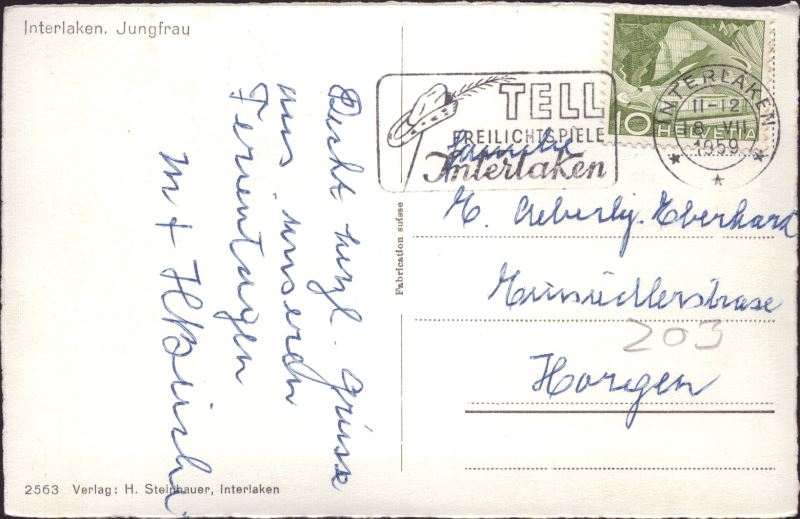 Interlaken. Jungfrau
Recht herzl. Grüsse
aus unseren
Ferientagen
M + H
Fabrication suisse
TELL
FREILICHTSPIELE
Interlaken
10 HELVETIA
INTERLAKEN
11-12
8. VII.
1959
Familie
H. Aeberly-Eberhard
Einsiedlerstrasse
203
Horgen
2563 Verlag: H. Steinhauer, Interlaken